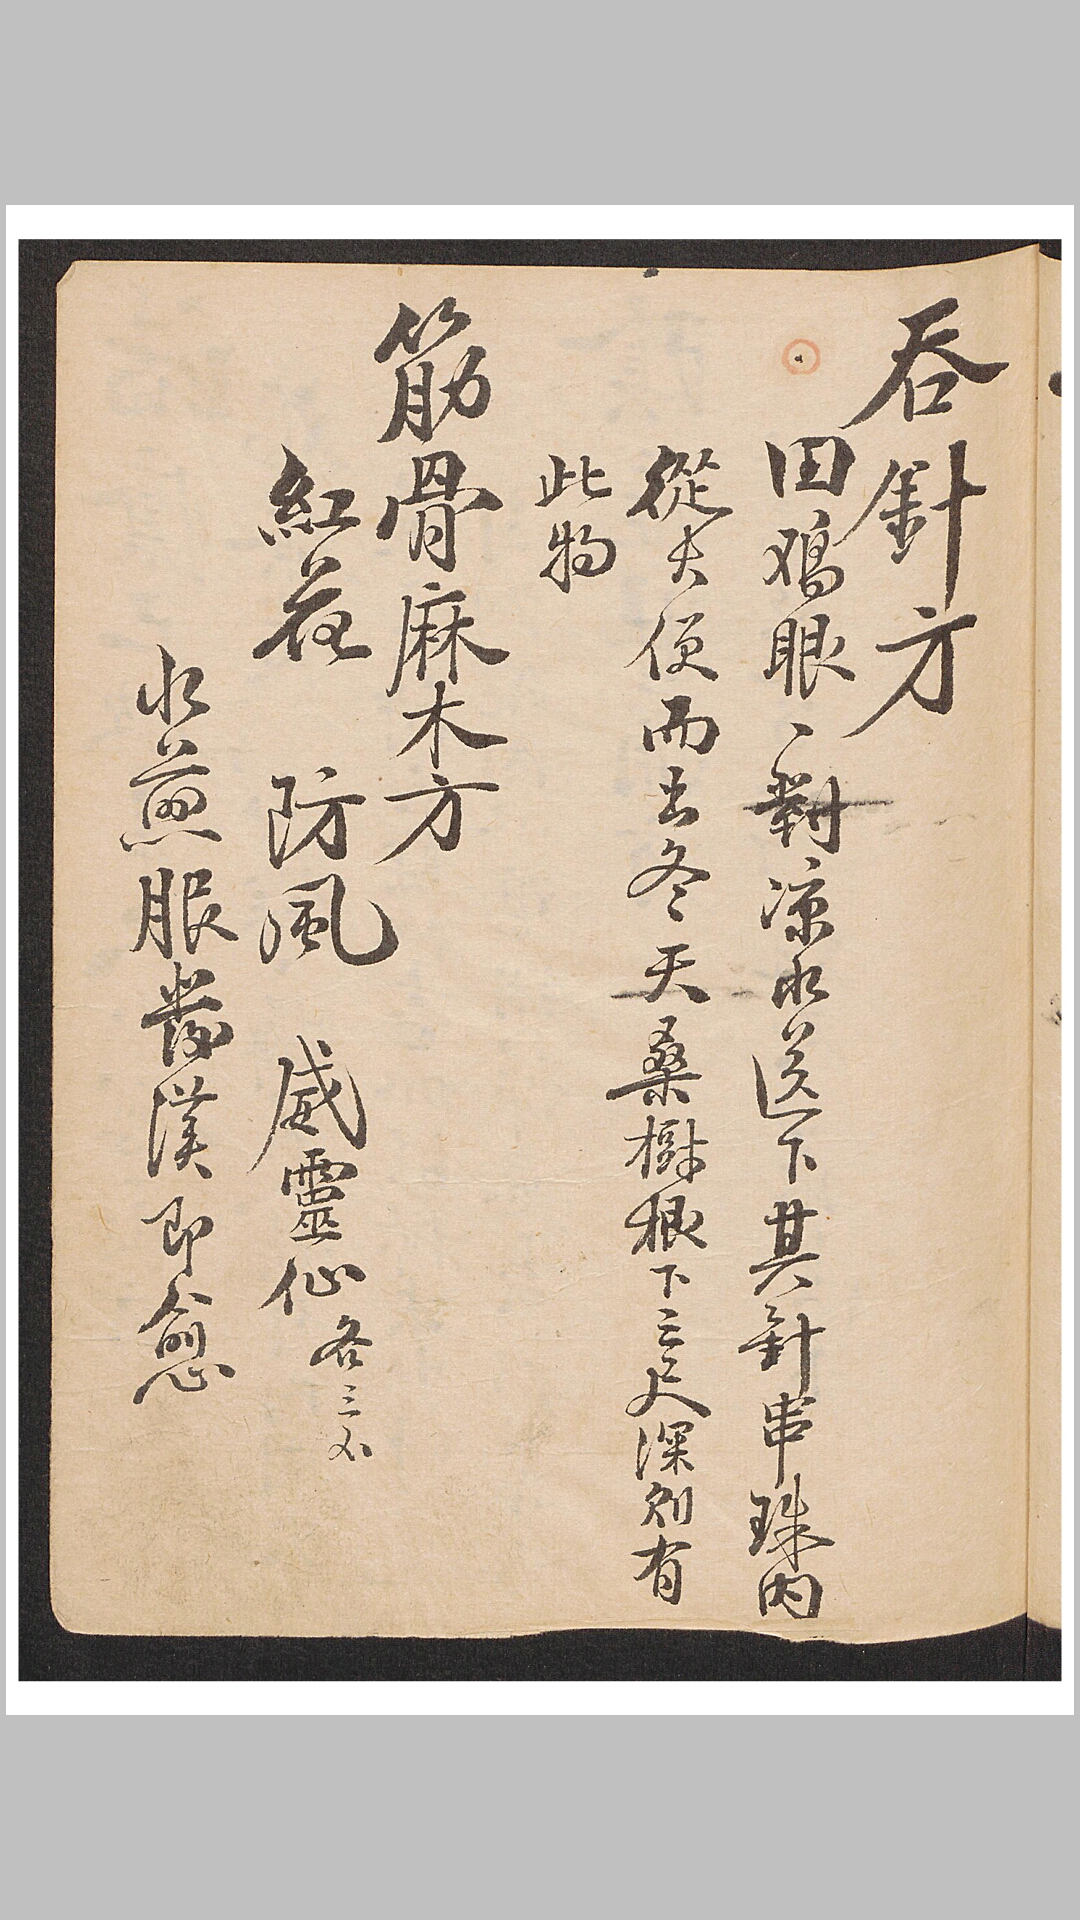 吞針方
田鳮眼一對凉水送下其針串珠内
從大便而出冬天桑樹根下三尺深則有
此物
筋骨麻木方
紅花 防風 威靈仙各三不
水煎服發漢即愈